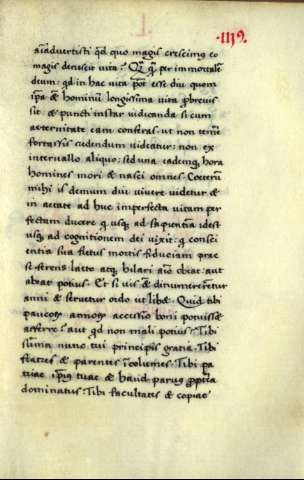 ·1119·
aīadvertisti qd quo magis crescimus eo
magis decrescit vita? per immortalē
deum: qd in hac vita pōt esse diu quem
ipā & hominū longissima vita pbrevis
sit & puncti instar iudicanda si cum
aeternitate eam conferas. ut non temē
fortassis credendum videatur: non ex
intervallo aliquo: sed una eademq hora
homines mori & nasci omnes. Ceterum
mihi is demum diu vivere videtur &
in aetate ad huc imperfecta vitam per
fectam ducere q usq ad sapientiā idest
usq ad cognitionem dei vixit: q consci
entia sua fletus mortis fiduciam prae
se ferens laeto atq hilari aīo obiat: aut
abeat potius. Et si vis & dinumerentur
anni & servetur ordo ut libet. Quid tibi
paucoꝝ annoꝝ accessio boni potuisset
afferre: aut qd non mali potius? Tibi
summa nunc tui principis gratia. Tibi
fratres & parentes īcolumes. Tibi pa
triae ipīus tuae & haud parvus ppīnqua
dominatus. Tibi facultates & copiae